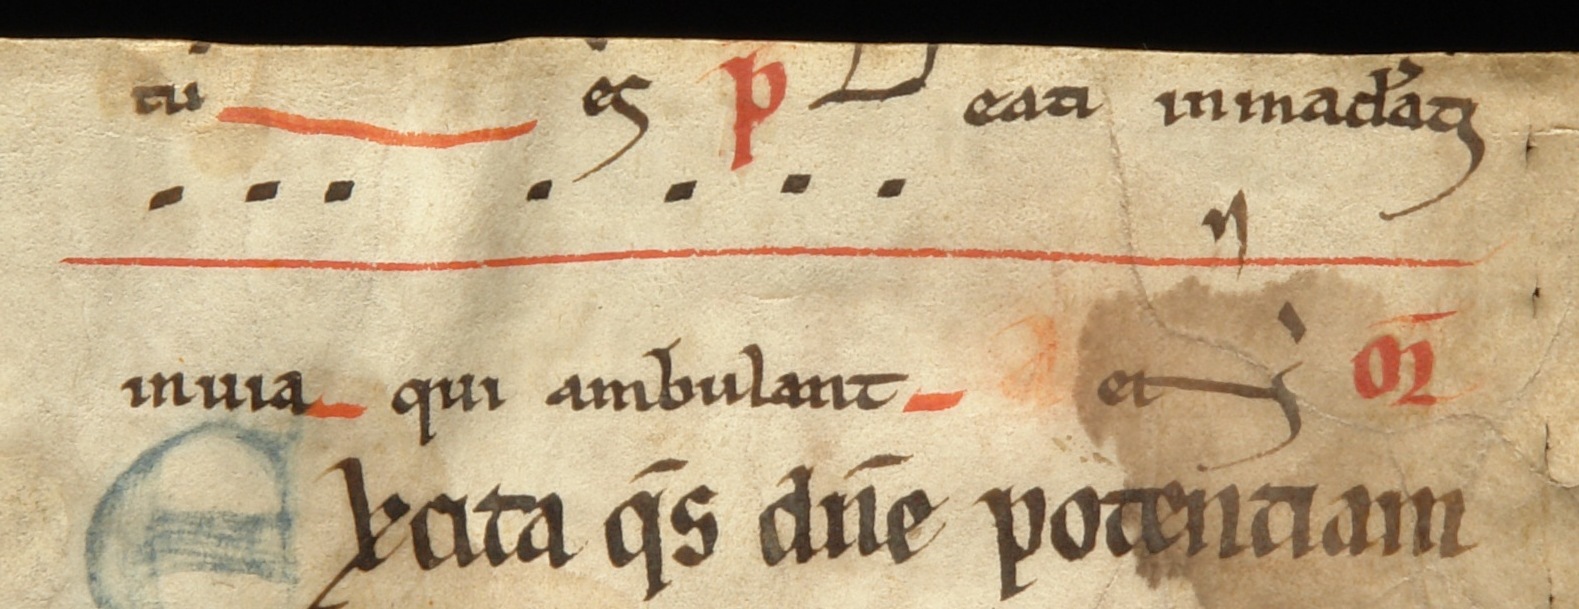 tu es p Beati inmaclati
inuia qui ambulant ei Oꝛ̄
Excita q̄s dn̄e potentiam